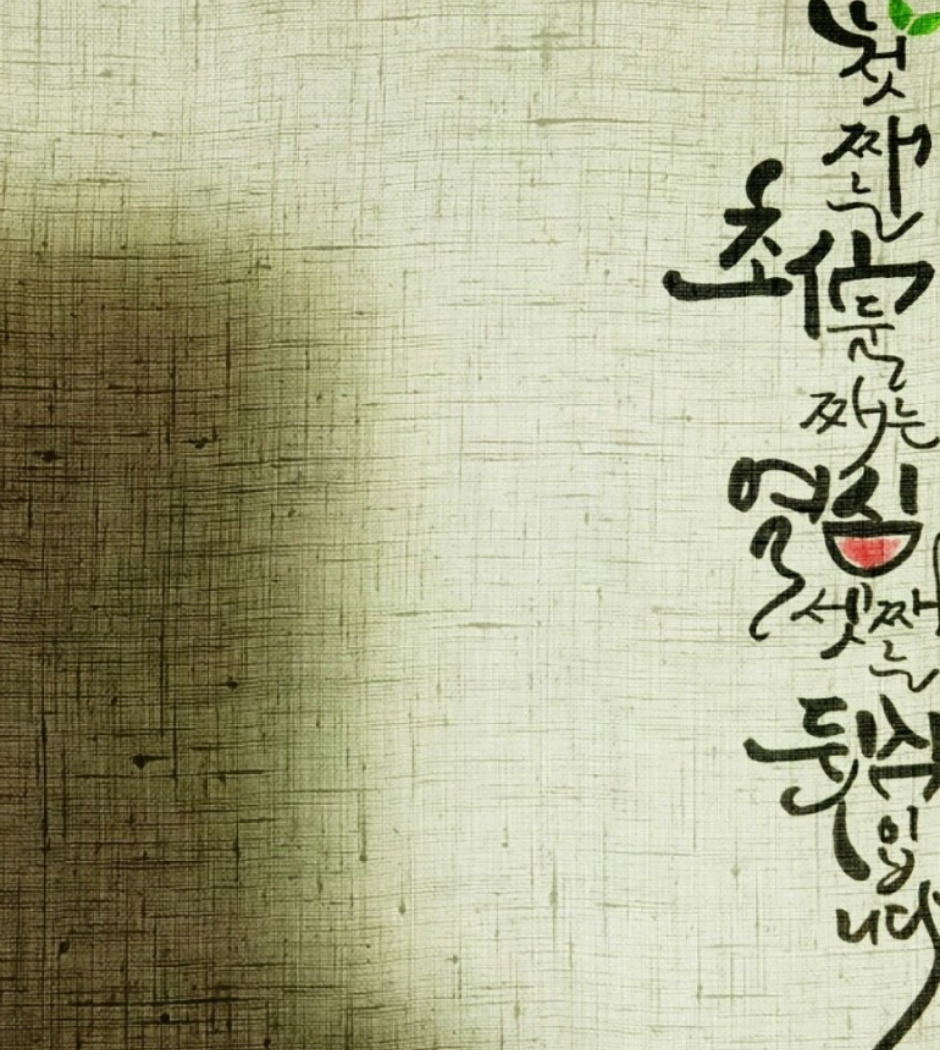 첫
째
는
초心
둘
째는
열심
셋째
는
뒷심
입
니다